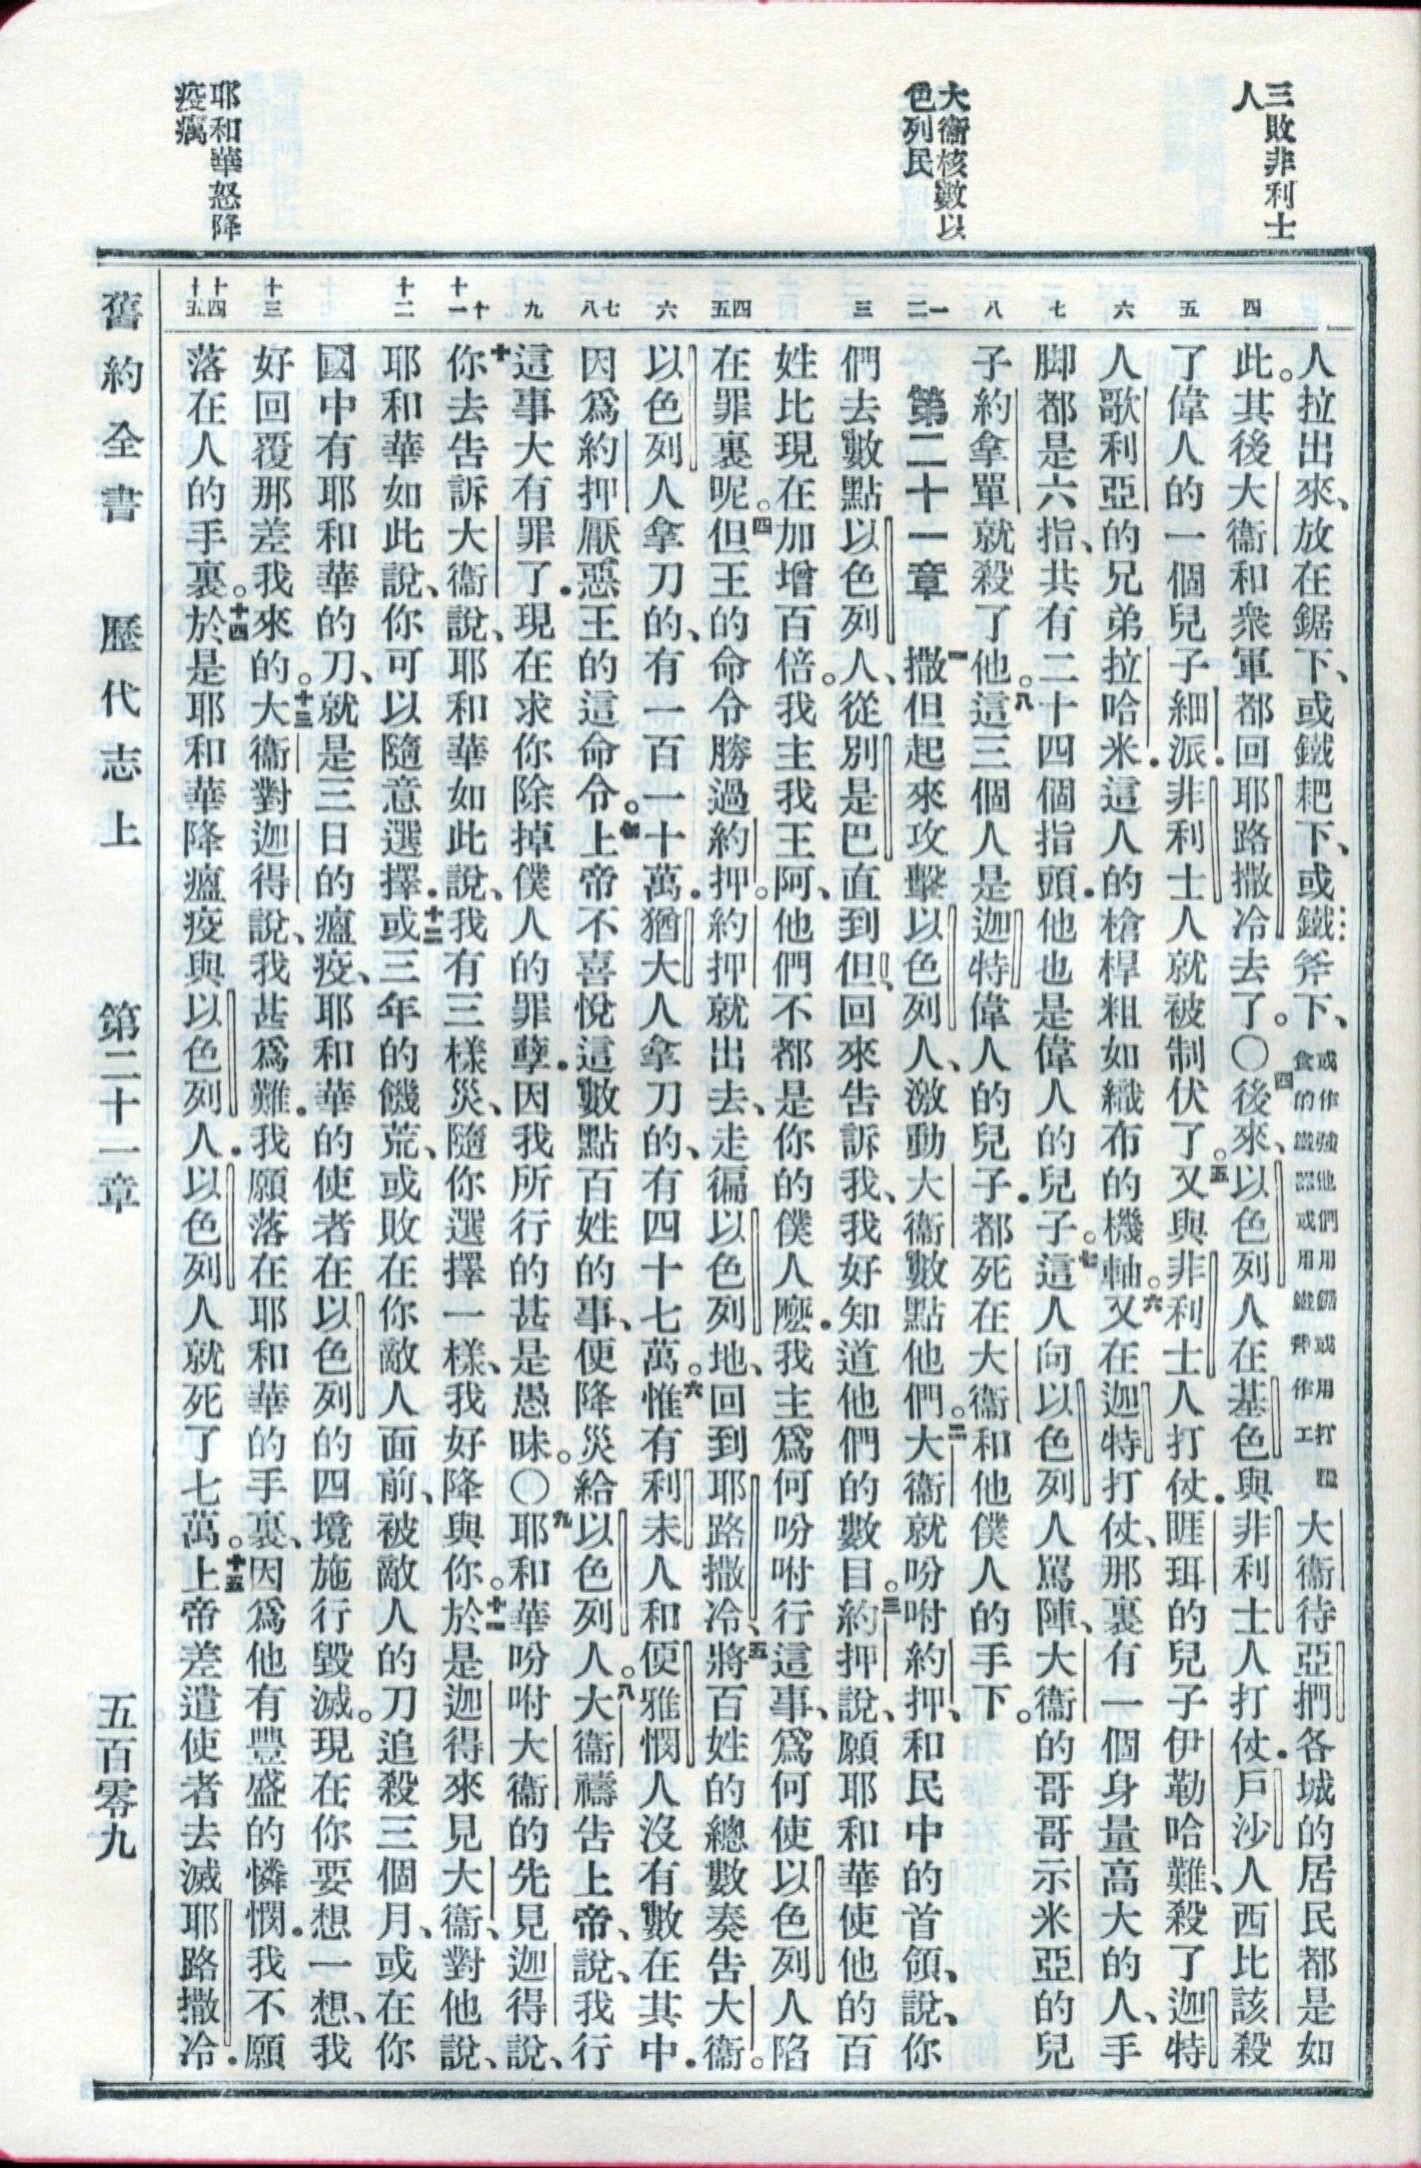 三敗非利士
人
大衞核數以
色列民
耶和華怒降
疫癘
四
五
六
七
八
一二
三
四五
六
七八
九
十十一
十二
十三
十四十五
人拉出來、放在鋸下、或鐵耙下、或鐵斧下、或作强他們用鋸或用打糧食的鐵器或用鐵斧作工大衞待亞捫各城的居民都是如
此。其後大衞和衆軍都回耶路撒冷去了。〇四後來、以色列人在基色與非利士人打仗．戶沙人西比該殺
了偉人的一個兒子細派．非利士人就被制伏了。五又與非利士人打仗．睚珥的兒子伊勒哈難、殺了迦特
人歌利亞的兄弟拉哈米．這人的槍桿粗如織布的機軸。六又在迦特打仗、那裏有一個身量高大的人、手
脚都是六指、共有二十四個指頭．他也是偉人的兒子。七這人向以色列人罵陣、大衞的哥哥示米亞的兒
子約拿單就殺了他。八這三個人是迦特偉人的兒子．都死在大衞和他僕人的手下。
第二十一章　一撒但起來攻擊以色列人、激動大衞數點他們。二大衞就吩咐約押、和民中的首領、說、你
們去數點以色列人、從別是巴直到但、回來告訴我、我好知道他們的數目。三約押說、願耶和華使他的百
姓比現在加增百倍。我主我王阿、他們不都是你的僕人麽．我主爲何吩咐行這事、爲何使以色列人陷
在罪裏呢。四但王的命令勝過約押。約押就出去、走徧以色列地、回到耶路撒冷、五將百姓的總數奏告大衞。
以色列人拿刀的、有一百一十萬．猶大人拿刀的、有四十七萬。六惟有利未人和便雅憫人沒有數在其中．
因爲約押厭惡王的這命令。七上帝不喜悅這數點百姓的事、便降災給以色列人。八大衞禱告上帝、說、我行
這事大有罪了．現在求你除掉僕人的罪孽．因我所行的甚是愚昧。〇九耶和華吩咐大衞的先見迦得說、
十你去告訴大衞說、耶和華如此說、我有三樣災、隨你選擇一樣、我好降與你。十一於是迦得來見大衞、對他說、
耶和華如此說、你可以隨意選擇．十二或三年的饑荒、或敗在你敵人面前、被敵人的刀追殺三個月、或在你
國中有耶和華的刀、就是三日的瘟疫、耶和華的使者在以色列的四境施行毀滅。現在你要想一想、我
好回覆那差我來的。十三大衞對迦得說、我甚爲難．我願落在耶和華的手裏、因爲他有豐盛的憐憫．我不願
落在人的手裏。十四於是耶和華降瘟疫與以色列人．以色列人就死了七萬。十五上帝差遣使者去滅耶路撒冷．
舊約全書　歷代志上　第二十一章　五百零九